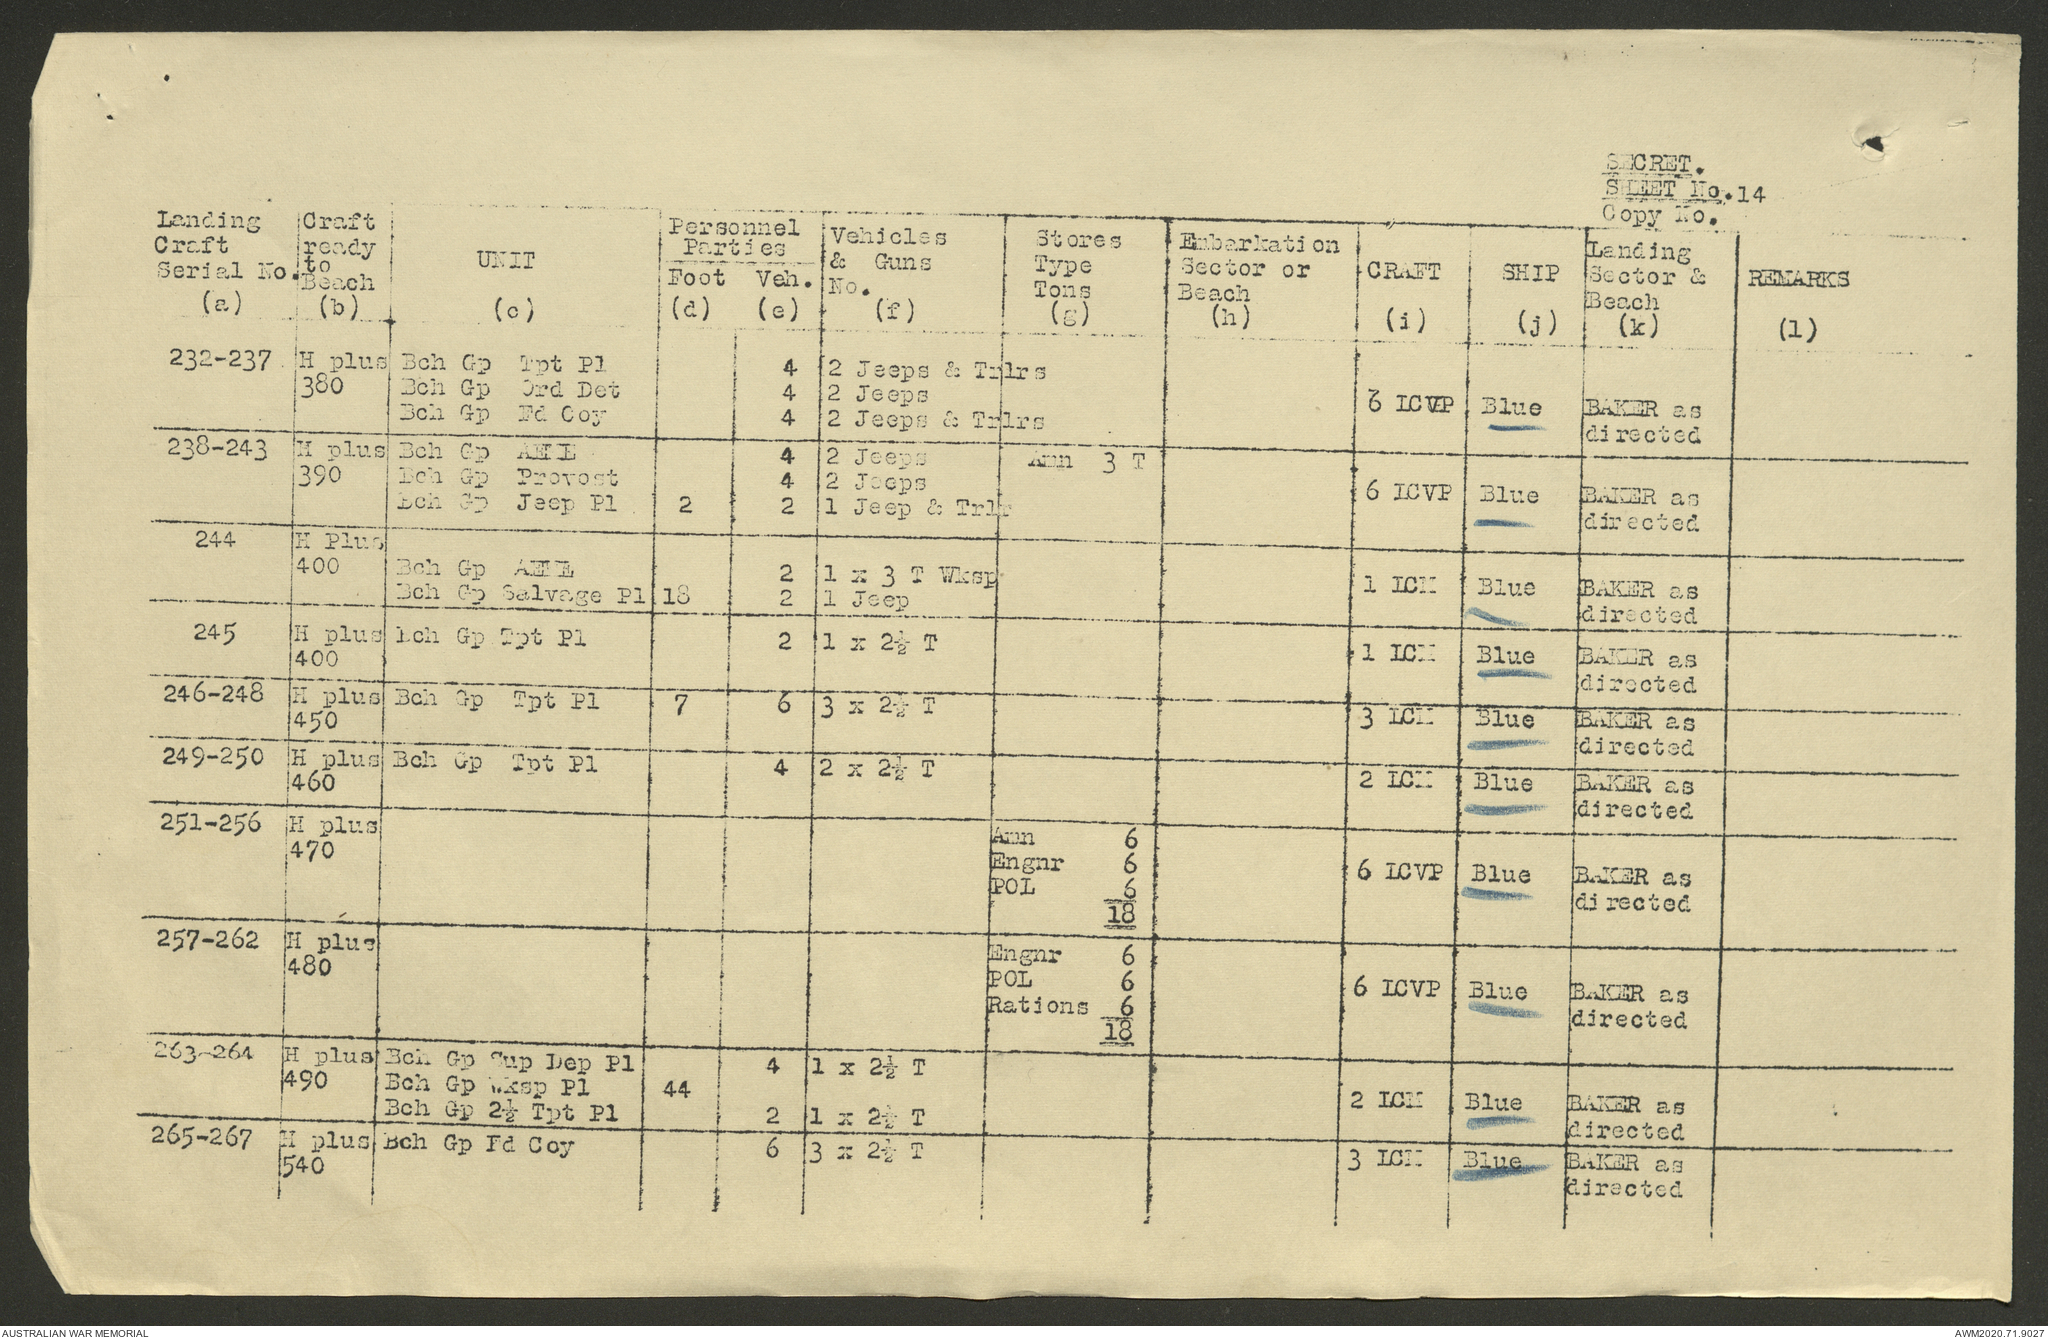 SECRET.
SHEET No.14
Copy No.
Landing Craft Serial No. (a) | Craft ready to Beach (b) | UNIT (c) | Personnel Parties Foot (d) | Veh. (e) | Vehicles & Guns No. (f) | Stores Type Tons (g) | Embarkation Sector or Beach (h) | CRAFT (i) | SHIP (j) | Landing Sector & Beach (k) | REMARKS (l)
232-237 H plus 380 Bch Gp Tpt Pl 4 2 Jeeps & Trlrs
Bch Gp Ord Det 4 2 Jeeps
Bch Gp Fd Coy 4 2 Jeeps & Trlrs 6 LCVP Blue BAKER as directed
238-243 H plus 390 Bch Gp 4 2 Jeeps Amn 3 T
Bch Gp Provost 4 2 Jeeps
Bch Gp Jeep Pl 2 2 1 Jeep & Trlr 6 LCVP Blue BAKER as directed
244 H Plus 400 Bch Gp 2 1 x 3 T Wksp
Bch Gp Salvage Pl 18 2 1 Jeep 1 LCM Blue BAKER as directed
245 H plus 400 Bch Gp Tpt Pl 2 1 x 2½ T 1 LCM Blue BAKER as directed
246-248 H plus 450 Bch Gp Tpt Pl 7 6 3 x 2½ T 3 LCM Blue BAKER as directed
249-250 H plus 460 Bch Gp Tpt Pl 4 2 x 2½ T 2 LCM Blue BAKER as directed
251-256 H plus 470 Amn 6
Engnr 6
POL 6
18 6 LCVP Blue BAKER as directed
257-262 H plus 480 Engnr 6
POL 6
Rations 6
18 6 LCVP Blue BAKER as directed
263-264 H plus 490 Bch Gp Sup Dep Pl 4 1 x 2½ T
Bch Gp Wksp Pl 44
Bch Gp 2½ Tpt Pl 2 1 x 2½ T 2 LCM Blue BAKER as directed
265-267 H plus 540 Bch Gp Fd Coy 6 3 x 2½ T 3 LCM Blue BAKER as directed
AUSTRALIAN WAR MEMORIAL
AWM2020.71.9027